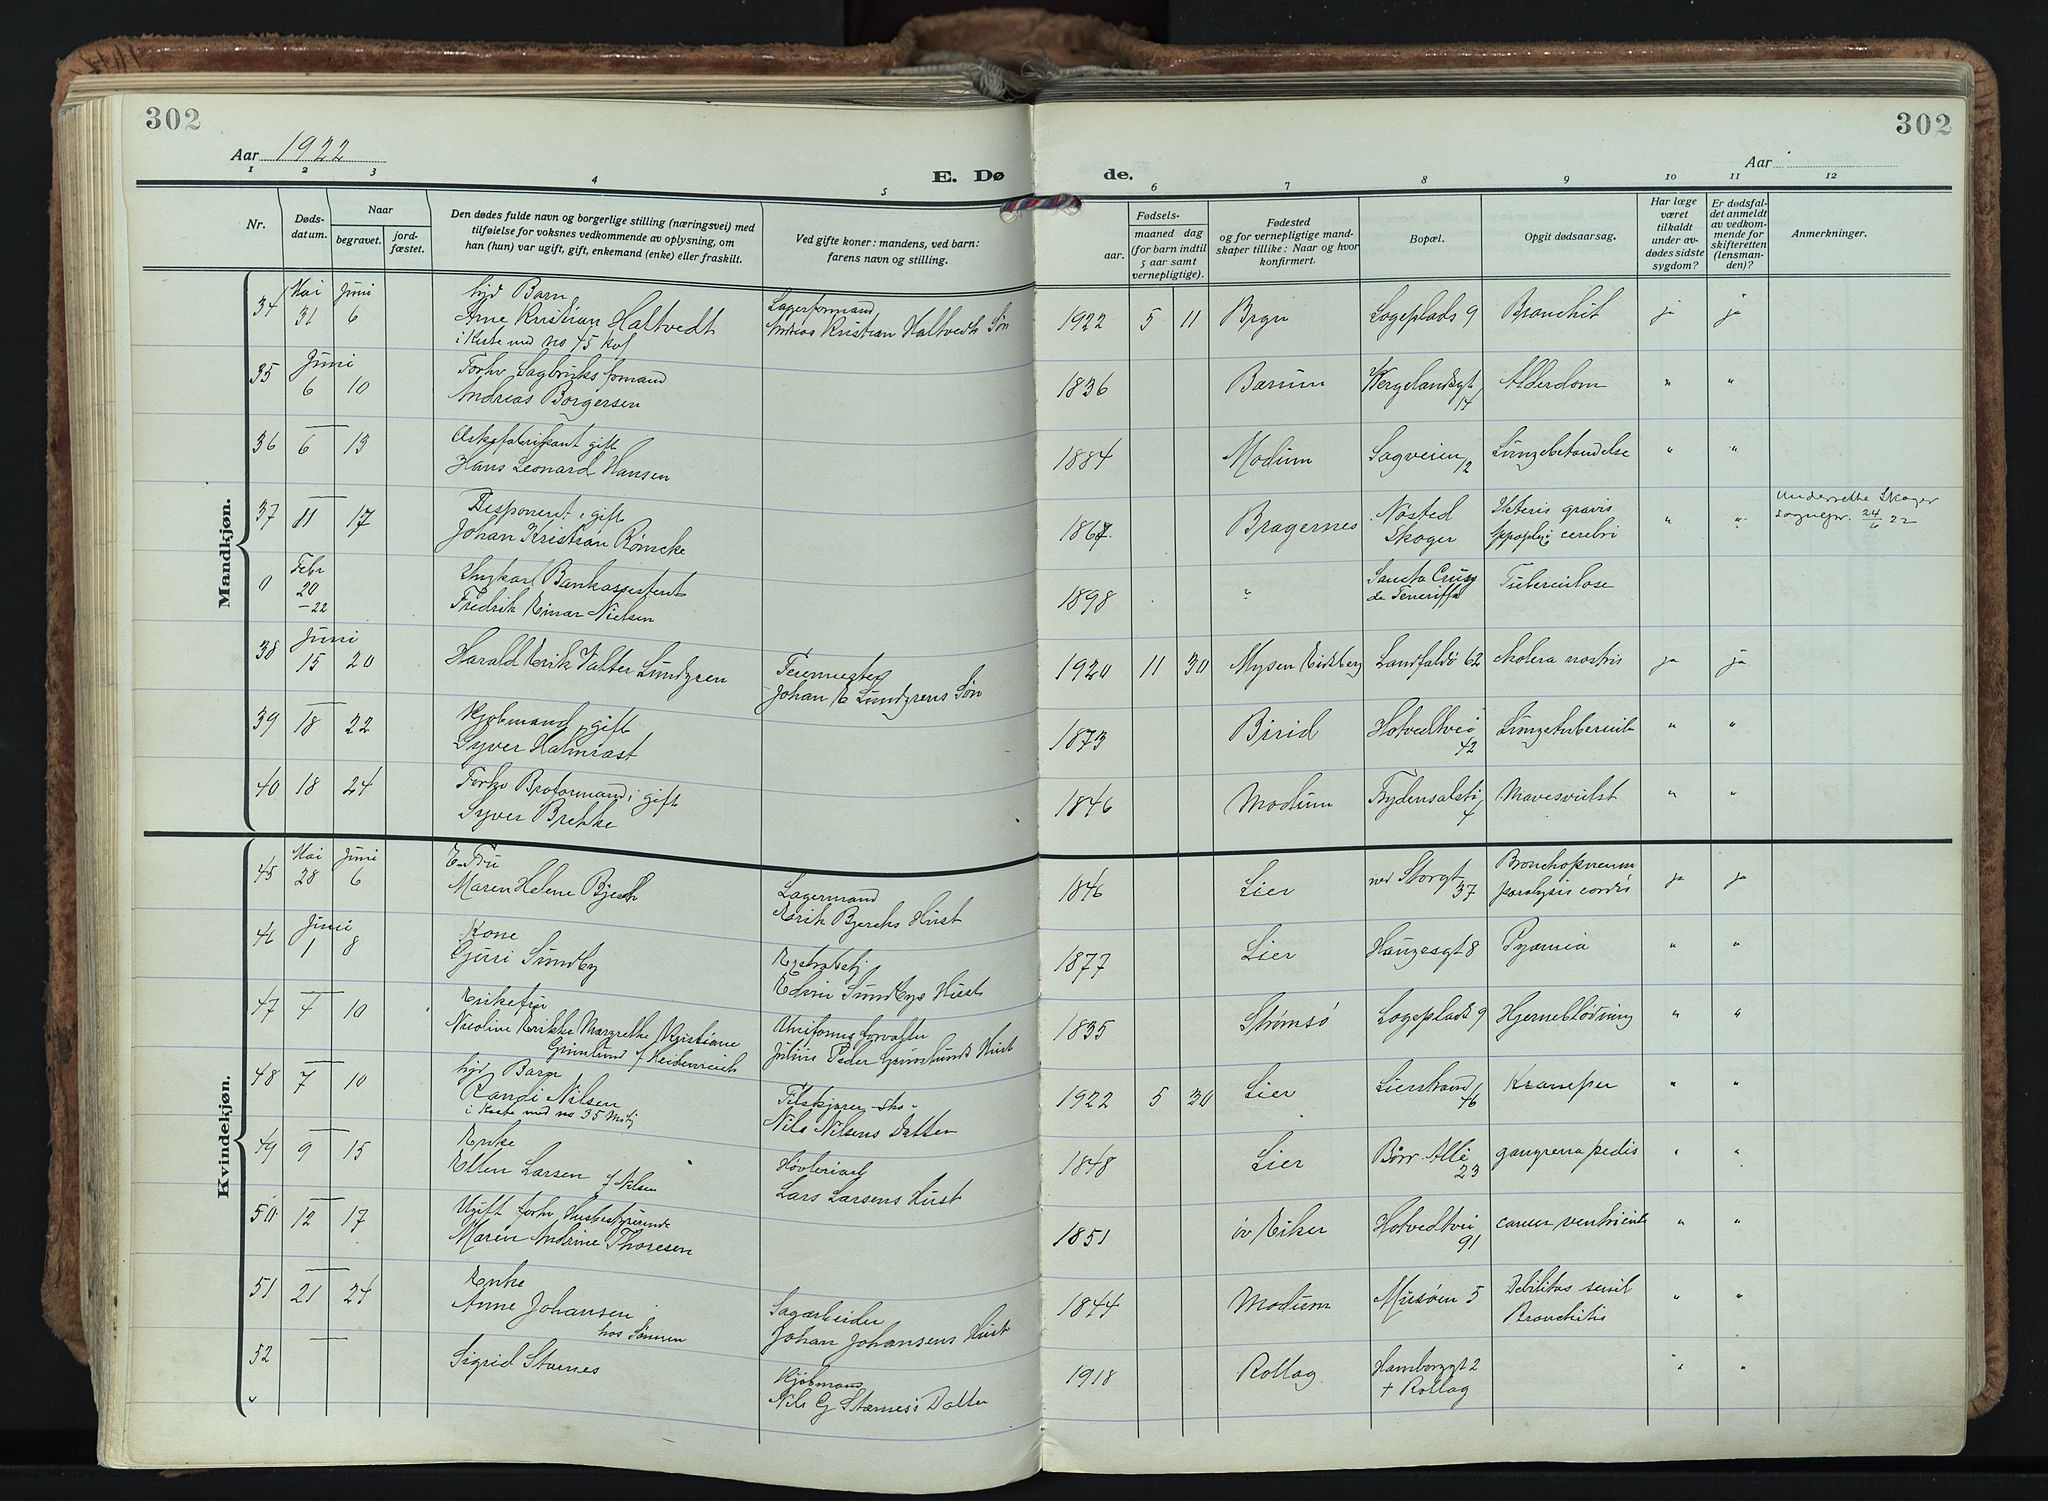 302
302
Aar 1922
Aar
E. Dø
de.
1 2 3 4 5 6 7 8 9 10 11 12
Nr.
Døds-
datum.
Naar
begravet.
jord-
fæstet.
Den dødes fulde navn og borgerlige stilling (næringsvei) med
tilføielse for voksnes vedkommende av oplysning, om
han (hun) var ugift, gift, enkemand (enke) eller fraskilt.
Ved gifte koner: mandens, ved barn:
farens navn og stilling.
Fødsels-
aar. maaned dag
(for barn indtil
5 aar samt
vernepligtige).
Fødested
og for vernepligtige mand-
skaper tillike: Naar og hvor
konfirmert.
Bopæl.
Opgit dødsaarsag.
Har læge
været
tilkaldt
under av-
dødes sidste
sygdom?
Er dødsfal-
det anmeldt
av vedkom-
mende for
skifteretten
(lensman-
den)?
Anmerkninger.
Mandkjøn.
34 Mai 31 Juni 6
Barn
Arne Kristian Haltvedt
i Kiste med no 45 
Lagerformand
Andreas Kristian Haltvedts Søn
1922 5 11 Brgn Logeplads 9 Bronchit ja ja
35 Juni 6 10
Forhv Sagbruksformand
Andreas Borgersen
1836 Bærum Wergelandsgt 14 Alderdom " "
36 6 13
Æskefabrikant gift
Hans Leonard Hansen
1884 Modum Sagveien 12 Lungebetændelse " "
37 11 17
Disponent, gift
Johan Kristian Rømcke
1867 Bragernes Nøsted Skoger
Icteris gravis
Appoplexi cerebri " "
Underrette Skoger
sognepr. 24/6 22
0 Febr 20 -22
Ungkarl Bankassistent
Fredrik Einar Nielsen
1898 " Sancta Crus
de Teneriffa
Tuberculose
38 Juni 15 20
Harald Erik Valter Lundgren
Feiermester
Johan E Lundgrens Søn
1920 11 30 Mysen Eidsberg Landfaldø 62 cholera nostris ja ja
39 18 22
Kjøbmand, gift
Syver Halmrast
1873 Birid Hotvedtvei 42 Lungetuberkul " "
40 18 24
Forhv Broformand, gift
Syver Brekke
1846 Modum 4 Mavesvulst " "
Kvindekjøn.
45 Mai 28 Juni 6
E. Fru
Maren Helene Bjerch
Lagermand
Erik Bjerchs Hust
1846 Lier ned Storgt 37
Bronchopneum
paralysis cordis ja ja
46 Juni 1 8
Kone
Gjuri Sundby
Edvin Sundbys Hust
1877 Lier Haugesgt 8 Pyæmia " "
47 4 10
Enkefru
Nicoline Erikke Margrethe Kristiane
Grimlund f Heidenreich
Uniformsforvalter
Julius Peder Grimslunds Hust
1835 Strømsø Logeplads 9 Hjerneblødning " "
48 7 10
Barn
Randi Nilsen
i Kiste med no 35 
Tilskjærer sko-
Nils Nilsens Datter
1922 5 30 Lier Lierstrand 46 Kramper " "
49 9 15
Enke
Ellen Larsen f Nilsen
Høvleriarb
Lars Larsens Hust
1848 Lier Børr Allé 23 gangrena pedis " "
50 12 17
Ugift forhv Husbestyrerinde
Maren Andrine Thoresen
1851 øv Eiker Hotvedtvei 91 cancer ventricul " "
51 21 24
Enke
Anne Johansen
hos Sønnen
Sagarbeider
Johan Johansens Hust
1844 Modum Musøen 5
Debilitas senil
Bronchitis " "
52
Sigrid Stærnes
Kjøbmand
Nils G Stærnes's Datter
1918 Rollag Hamborggt 2
+ Rollag " "